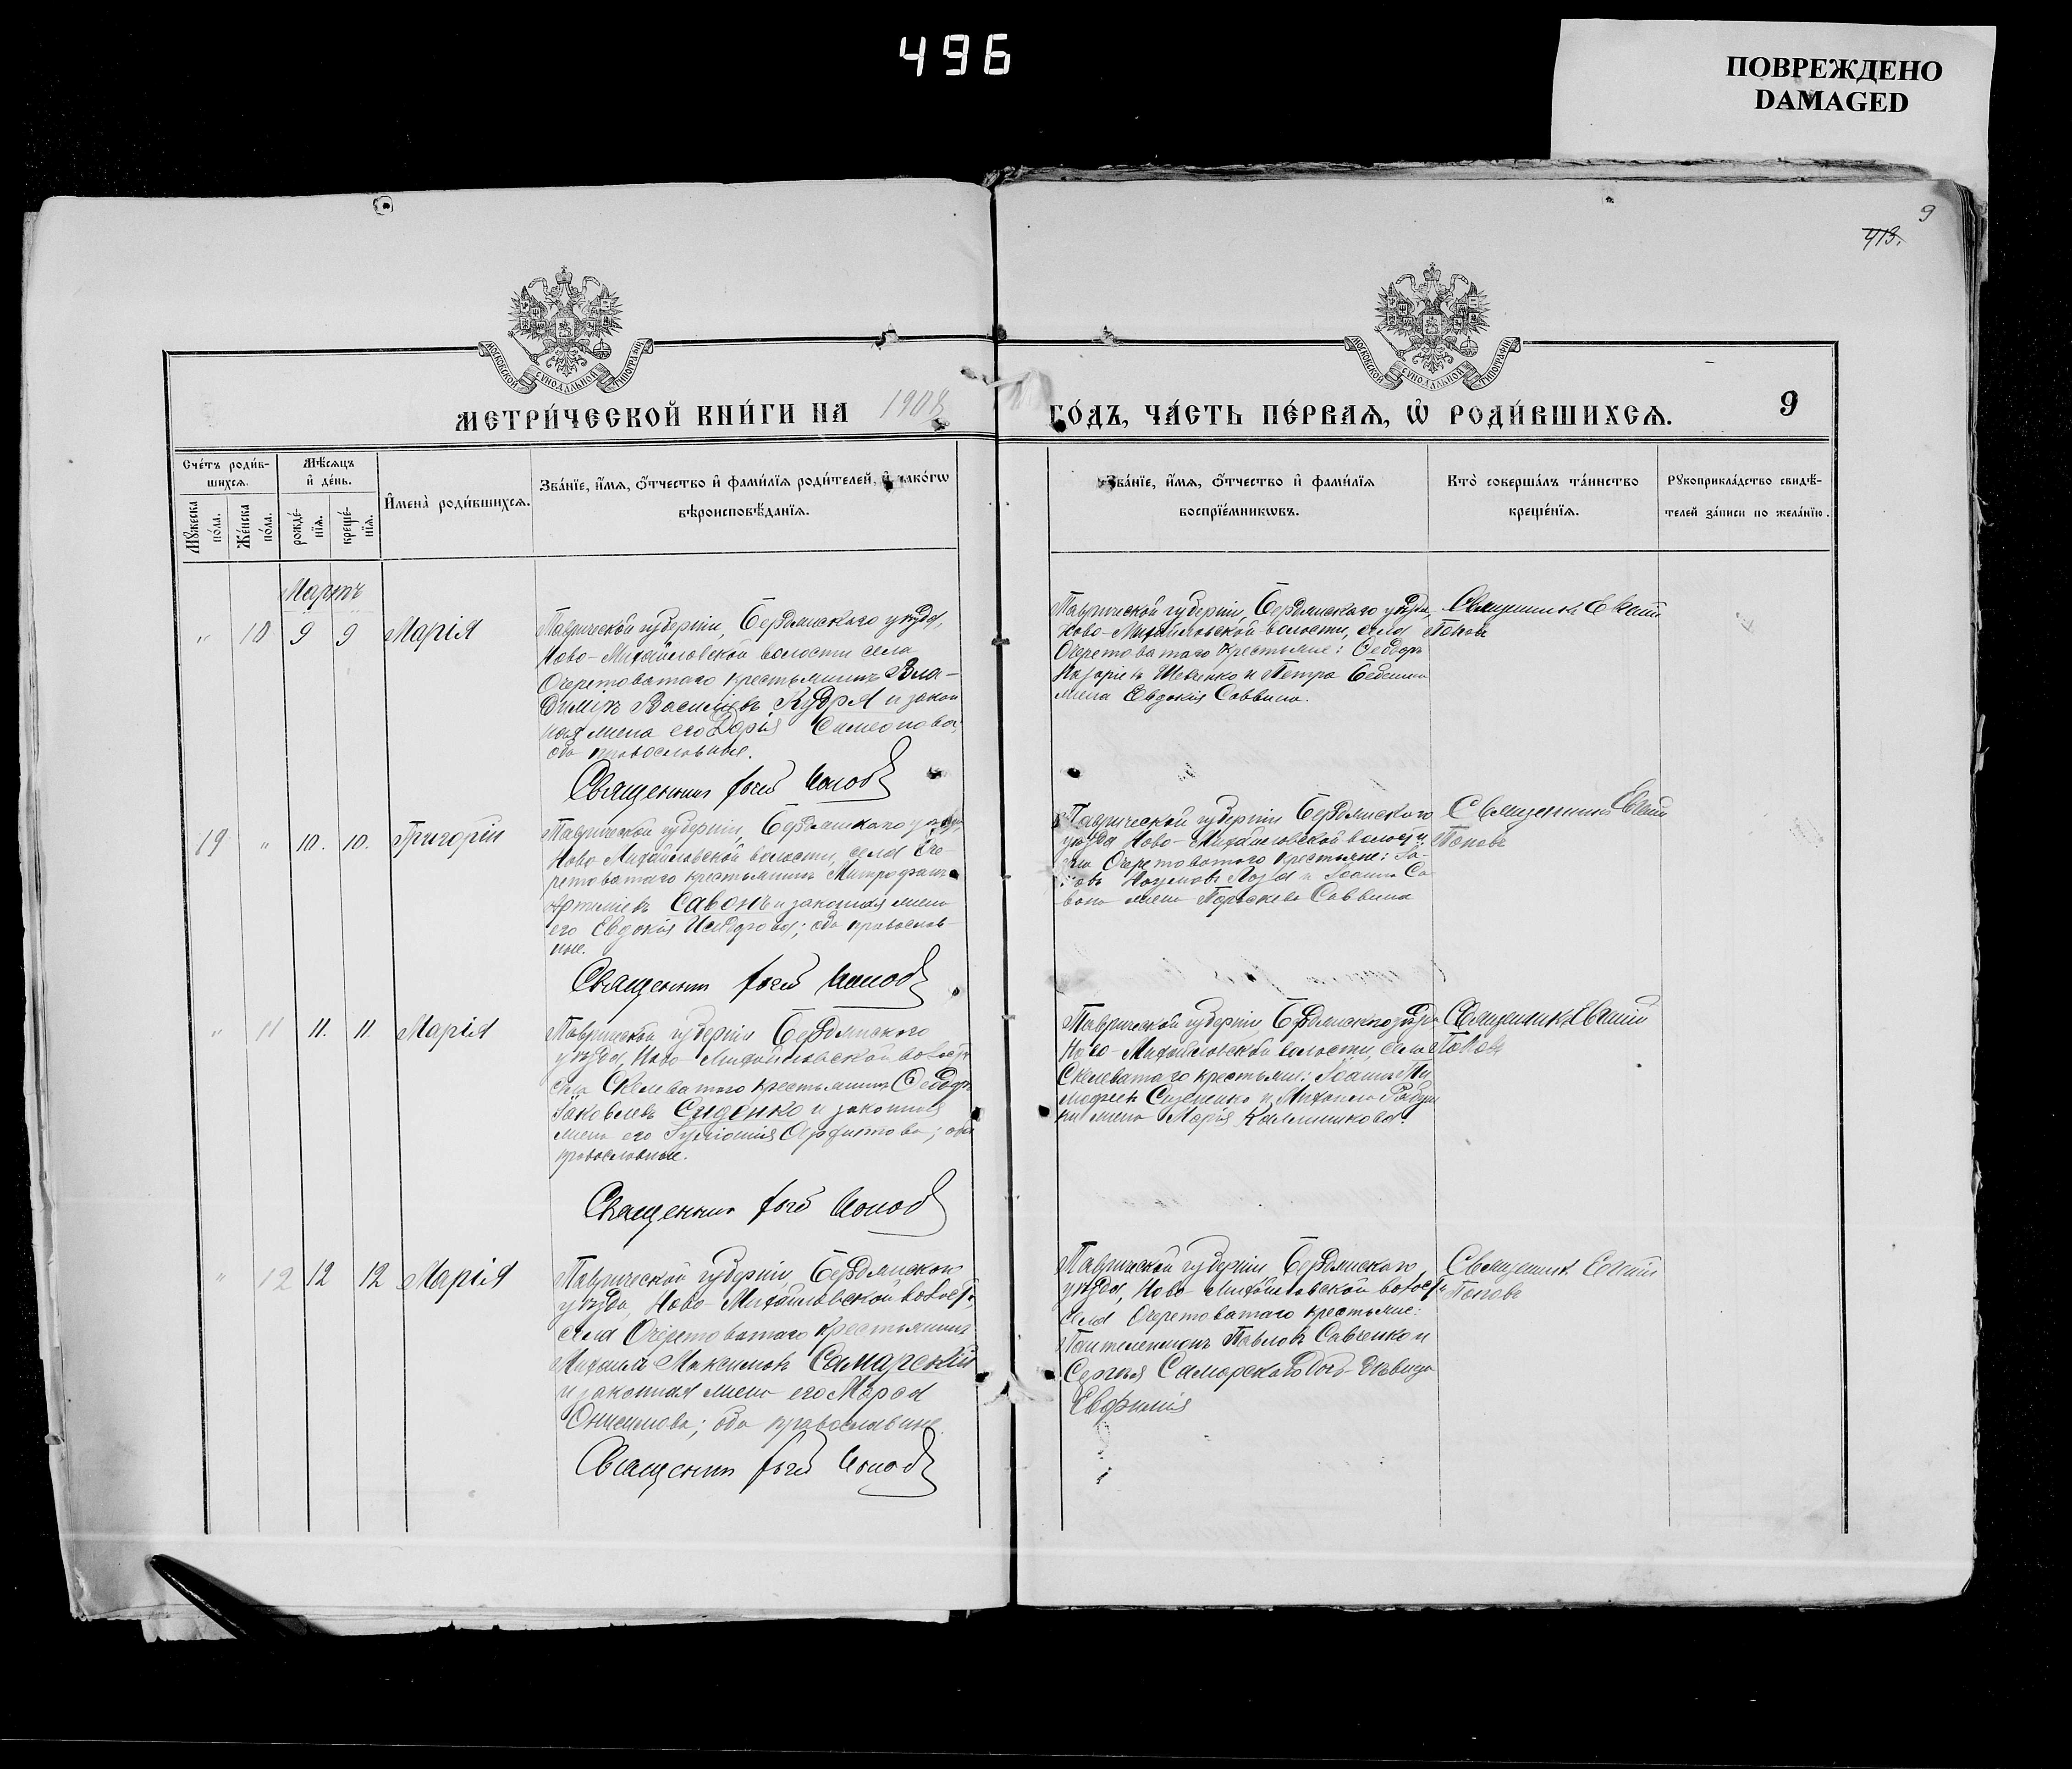 496
ПОВРЕЖДЕНО
DAMAGED
9
413.
МОСКОВСКОЙ СѴНОДАЛЬНОЙ ТИПОГРАФІИ
МОСКОВСКОЙ СѴНОДАЛЬНОЙ ТИПОГРАФІИ
МЕТРИ́ЧЕСКОЙ КНИ́ГИ НА 1908
ГО́ДЪ, ЧА́СТЬ ПЕ́РВАѦ, Ѡ҆ РОДИ́ВШИХСѦ. 9
Сче́тъ роди́в-
шихсѧ.
Мꙋ́жеска по́ла.
Же́нска по́ла.
Мѣ́сѧцъ
и҆ де́нь.
рожде́-
нїѧ.
креще́-
нїѧ.
И҆мена̀ роди́вшихсѧ.
Зва́нїе, и҆́мѧ, ѻ҆́тчество и҆ фами́лїѧ роди́телей, и҆ како́гѡ
вѣроисповѣ́данїѧ.
Зва́нїе, и҆́мѧ, ѻ҆́тчество и҆ фами́лїѧ
воспрїе́мникѡвъ.
Кто̀ соверша́лъ та́инство
креще́нїѧ.
Рꙋкоприкла́дство свидѣ́-
телей за́писи по жела́нїю.
Мартъ
" 10 9 9 Марія
Таврической губерніи, Бердянского уѣзда,
Ново-Михайловской волости села
Очеретоватаго крестьянинъ Вла-
диміръ Василіевъ Кудря и закон
ная жена его Дарія Симеонова,
оба православные.
Священник Попов
Таврической губерніи, Бердянскаго уѣзда,
Ново-Михайловской волости, села
Очеретоватаго крестьяне: Ѳеодоръ
Назаріевъ Шевченко и Петра
жена Евдокія Саввина.
Священникъ
Поповъ
19 " 10. 10. Григорій
Таврической губерніи, Бердянскаго уѣзда,
Ново-Михайловской волости, села Оче-
ретоватаго крестьянинъ Митрофанъ
Артеміевъ Савонъ и законная жена
его Евдокія Исидорова; оба православ-
ные.
Священник Попов
Таврической губерніи Бердянского
уѣзда Ново-Михайловской волости
села Очеретоватого крестьяне: Іа-
ковъ Наумовъ и Іоанна Са
вона жена Параскева Саввина
Священникъ
Поповъ
" 11 11. 11. Марія
Таврической губерніи Бердянского
уѣзда, Ново-Михайловской волости
села Скелеватого крестьянинъ Ѳеодоръ
Іаковлевъ Сиденко и законная
жена его ; оба
православные.
Священник Попов
Таврической губерніи, Бердянского уѣзда
Ново-Михайловской волости, села
Скелеватаго крестьяне: Іоаннъ Ти
моѳеевъ и Михаила
жена Марія Калинникова.
Священникъ
Поповъ
" 12 12 12 Марія
Таврической губерніи, Бердянского
уѣзда, Ново-Михайловской волости,
села Очеретоватаго крестьянинъ
Михаилъ Максимовъ Самарскій
и законная жена его Мароа
Онисимова; оба православные.
Священник Попов
Таврической губерніи Бердянского
уѣзда, Ново-Михайловской волости
села Очеретоватаго крестьяне:
Пантелеимонъ Павловъ Савченко и
Сергѣя Самарскаго дочь дѣвица
Евфимія
Священникъ
Поповъ